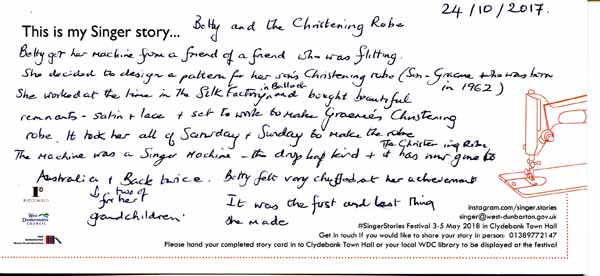 24/10/2017.
This is my Singer story... Betty and the Christening Robe
Betty got her machine from a friend of a friend who was flitting.
She decided to design a pattern for her son's Christening robe (Son - Graeme who was born in 1962)
She worked at the time in the Silk Factory in Balloch and bought beautiful
remnants - satin + lace + set to work to make Graeme's Christening
robe. It took her all of Saturday & Sunday to make the robe
The Machine was a Singer Machine - the drop leaf kind + it has now gone to
The Christening Robe
Australia & Back twice. Betty felt very chuffed at her achievement
for two of her
grandchildren.
It was the first and last thing
she made
West
Dunbartonshire
COUNCIL
instagram.com/singer.stories
singer@west-dunbarton.gov.uk
#SingerStories Festival 3-5 May 2018 in Clydebank Town Hall
Get in touch if you would like to share your story in person: 01389772147
Please hand your completed story card in to Clydebank Town Hall or your local WDC library to be displayed at the festival